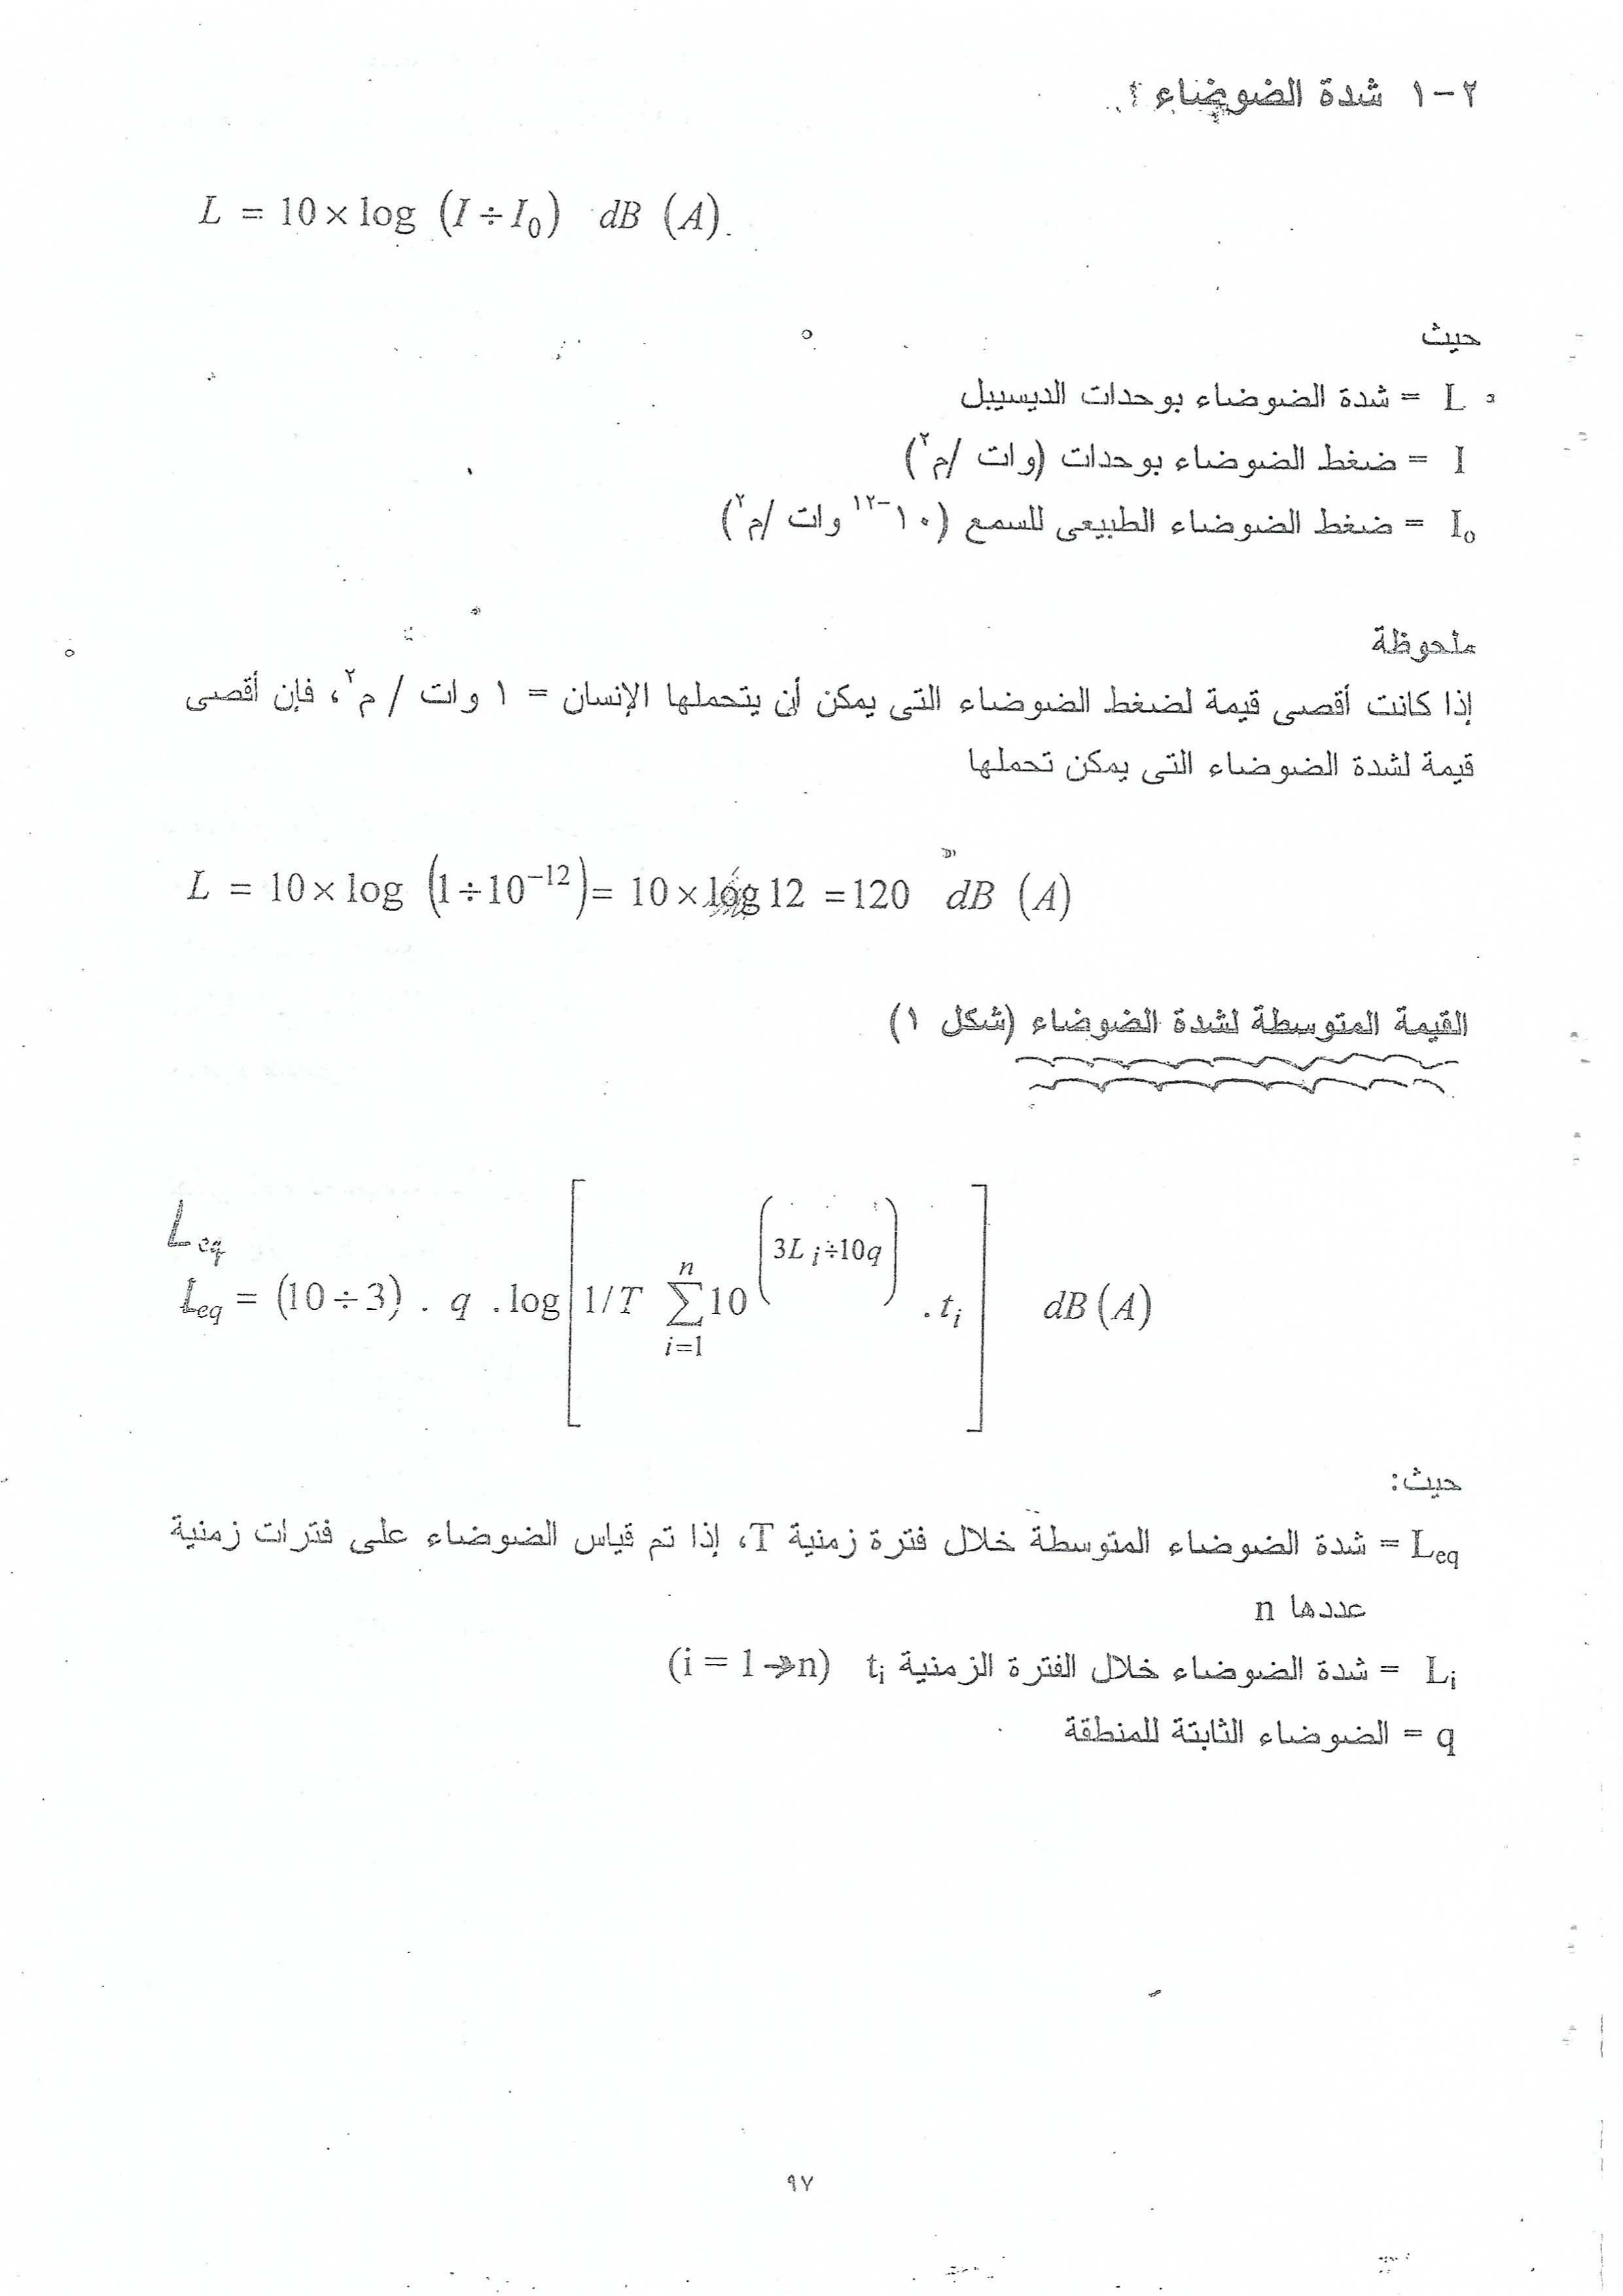 ٢-١ شدة الضوضاء :
L = 10 × log (I ÷ I₀) dB (A)
حيث
L = شدة الضوضاء بوحدات الديسيبل
I = ضغط الضوضاء بوحدات (وات /م٢)
I₀ = ضغط الضوضاء الطبيعى للسمع (١٠-١٢ وات /م٢)
ملحوظة
إذا كانت أقصى قيمة لضغط الضوضاء التى يمكن أن يتحملها الإنسان = ١ وات / م٢، فإن أقصى
قيمة لشدة الضوضاء التى يمكن تحملها
L = 10 × log (1 ÷ 10⁻¹²) = 10 × log 12 = 120 dB (A)
القيمة المتوسطة لشدة الضوضاء (شكل ١)
Leq
Leq = (10 ÷ 3) . q . log [1/T ∑ i=1 n 10 (3L i ÷ 10q) . ti] dB (A)
حيث:
Leq = شدة الضوضاء المتوسطة خلال فترة زمنية T، إذا تم قياس الضوضاء على فترات زمنية
عددها n
Li = شدة الضوضاء خلال الفترة الزمنية ti (i = 1→n)
q = الضوضاء الثابتة للمنطقة
٩٧